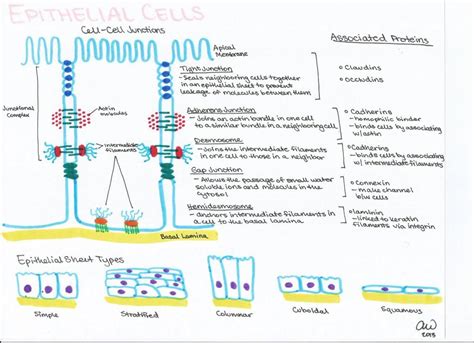 EPITHELIAL CELLS
Cell-Cell Junctions
Associated Proteins
Apical
Membrane
Tight Junction
-Seals neighboring cells together
in an epithelial sheet to prevent
leakage of molecules between them
o Claudins
o Occludins
Junctional
Complex
Actin
Adherens Junction
- Joins an actin bundle in one cell
to a similar bundle in a neighboring cell
o Cadherins
- homophilic binder
- binds cells by associating
w/ actin
Desmosome
- Joins the intermediate filaments
in one cell to those in a neighbor
o Cadherins
- binds cells by associating
w/ intermediate filaments
intermediate
filaments
Gap Junction
- Allows the passage of small water
soluble ions and molecules in the
cytosol
o Connexin
- make channel
b/w cells
Hemidesmosome
- anchors intermediate filaments in
a cell to the basal lamina
o laminin
- linked to keratin
filaments via integrin
Basal Lamina
Epithelial Sheet Types
Simple
Stratified
Columnar
Cuboidal
Squamous
2013